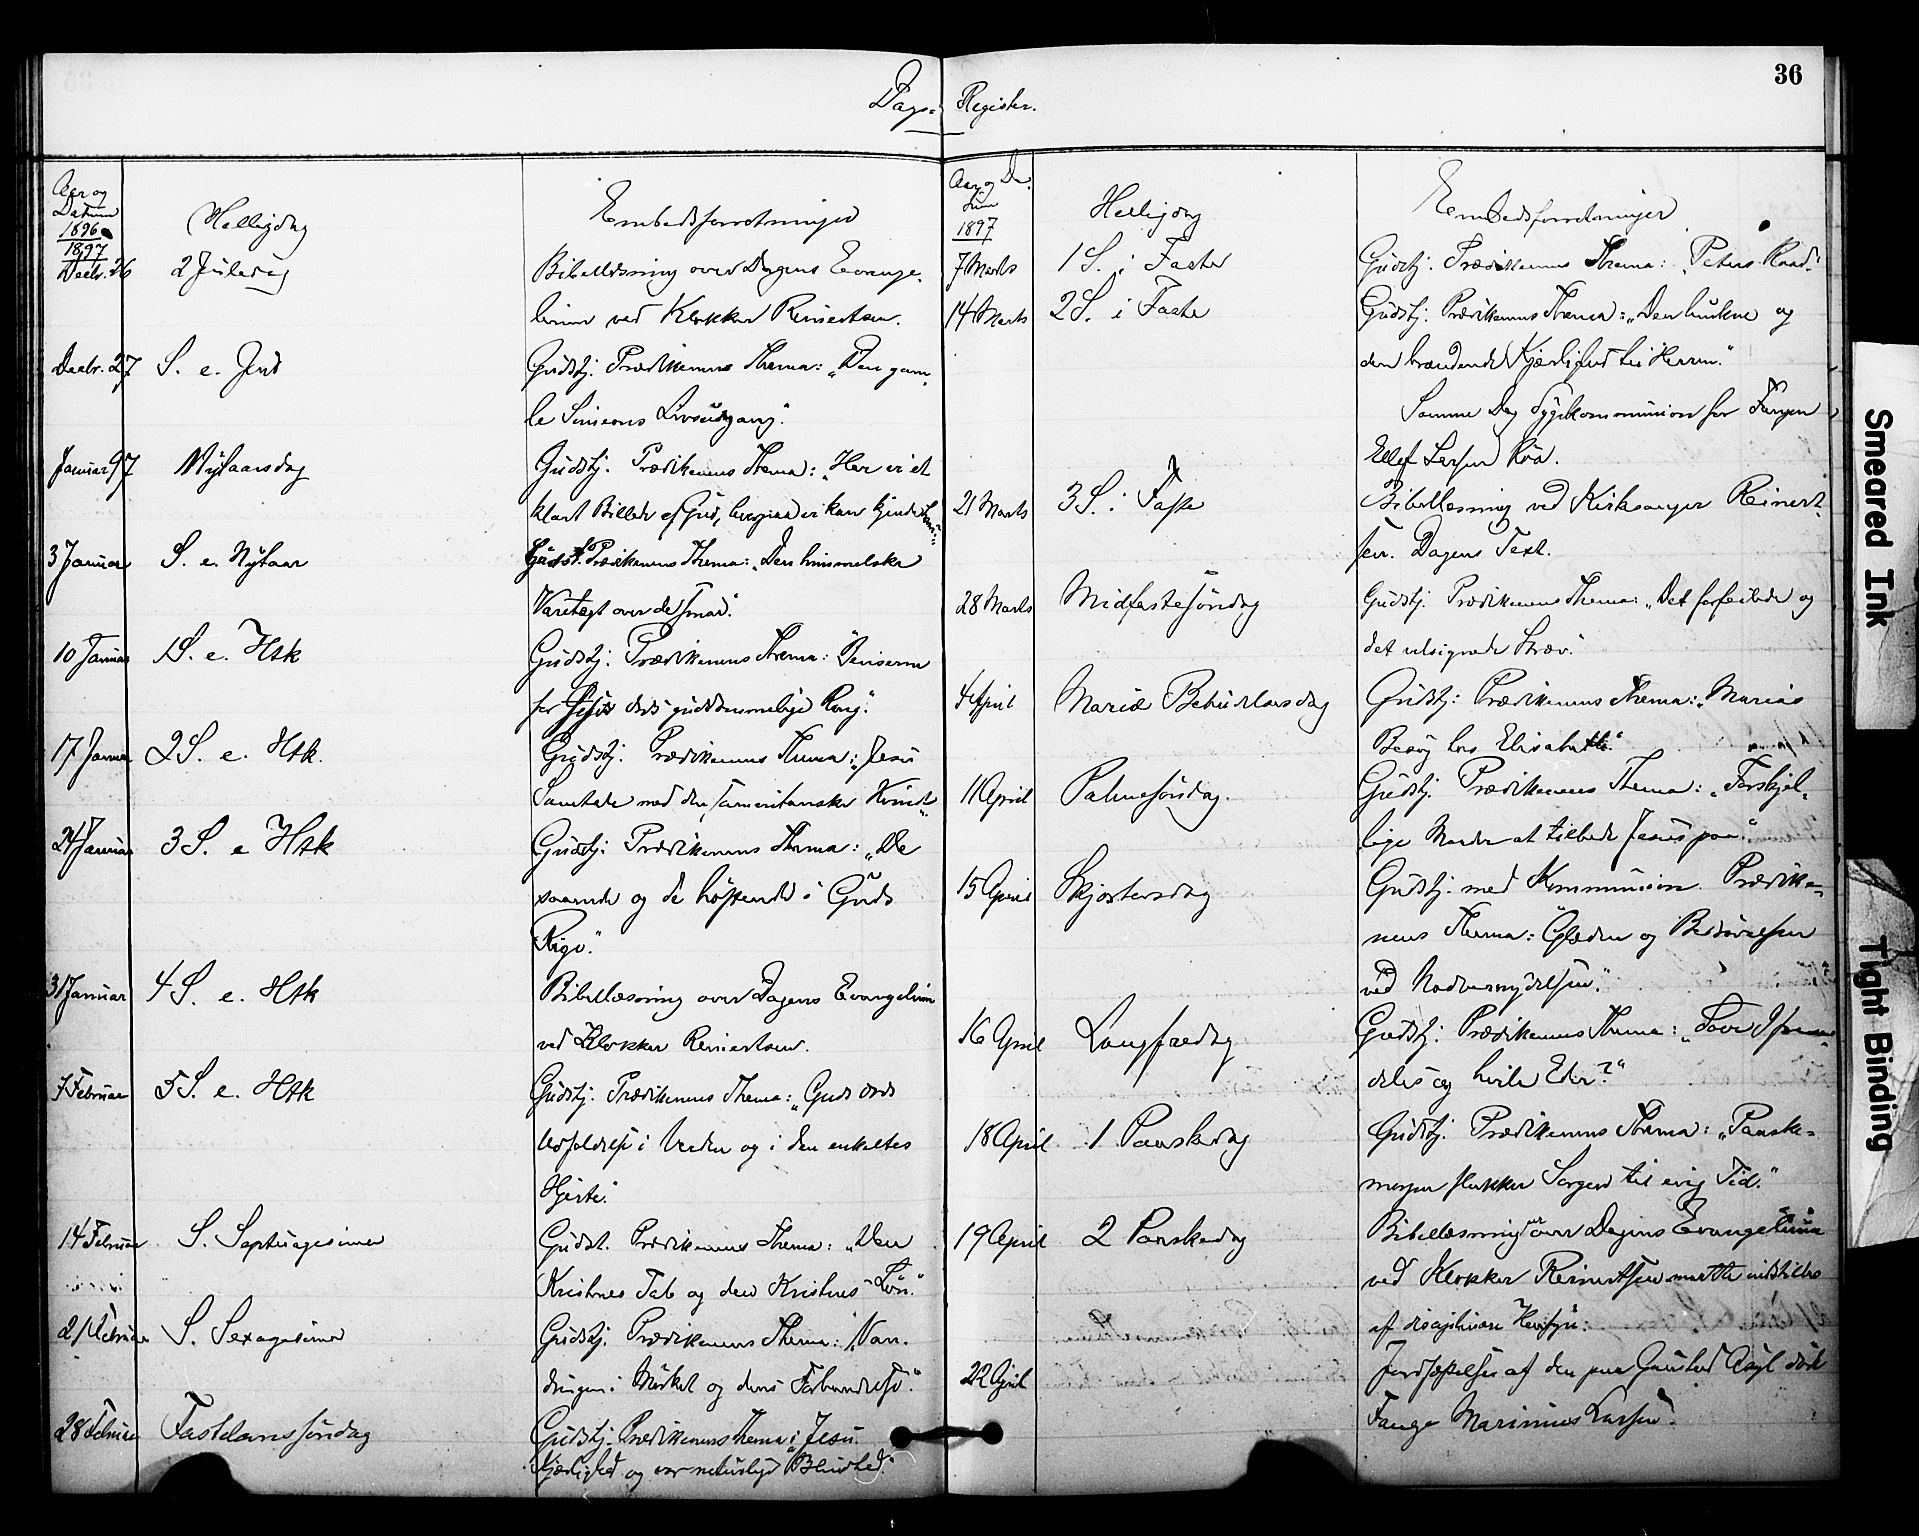 36
Dags- Register.
Aar og
Datum
1896
1897
Helligdag
Embedsforretninger
Decbr. 26 2 Juledag Bibellæsning over Dagens Evange-
lium ved Klokker Reinertsen.
Decbr. 27 S. e. Jul Gudstj. Prædikenens Thema: „Den gam-
le Simeons Livsudgang."
Januar 97 Nytaarsdag Gudstj. Prædikenens Thema: „Her er et
klart Billede af Gud, hvorpaa vi kan kjende
3 Januar S. e. Nytaar Gudst. Prædikenens Thema: „Den himmelske
Varetægt over de smaa".
10 Januar 1 S. e. Htk Gudstj. Prædikenens Thema: Beviserne
for Jesu guddommelige
17 Januar 2 S. e. Htk. Gudstj. Prædikenens Thema: „Jesu
Samtale med den samaritanske Kvinde"
24 Januar 3 S. e Htk Gudstj: Prædikenens Thema: „De
saaende og de høstende i Guds
Rige."
31 Januar 4 S. e. Htk Bibellæsning over Dagens Evangelium
ved Klokker Reinertsen.
7 Februar 5 S. e. Htk Gudstj. Prædikenens Thema: „Guds Ords
i Verden og i den enkeltes
Hjerte."
14 Februar S. Septuagesima Gudst. Prædikenens Thema: „Den
Kristnes Tab og den Kristnes Løn."
21 Februar S. Sexagesima Gudstj. Prædikenens Thema: „Van-
dringen i Mørket og dens
28 Februar Fastelavnssøndag Gudstj. Prædikenens Thema: „Jesu
Kjærlighed og vor naturlige Blindhed."
Aar og Da-
tum
1897
Helligdag
Embedsforretninger
7 Marts 1 S. i Faste Gudstj. Prædikenens Thema: „Peters Raad."
14 Marts 2 S. i Faste Gudstj. Prædikenens Thema: „Den lunkne og
den brændende Kjærlighed til Herren."
Samme Dag Sygekommunion for Fangen
Ellef Larsen
21 Marts 3 S. i Faste Bibellæsning ved Kirkesanger Reinert-
sen. Dagens Text.
28 Marts Midfastesøndag Gudstj. Prædikenens Thema: „Det forfeilede og
det velsignede
4 April Mariæ Bebudelsesdag Gudstj: Prædikenens Thema: „Marias
Besøg hos Elisabeth."
11 April Palmesøndag. Gudstj. Prædikenens Thema: „Forskjel-
lige Maader at tilbede Jesus paa."
15 April Skjærtorsdag Gudstj. med Kommunion. Prædike-
nens Thema: Glæden og Bedrøvelsen
ved Nadvernydelsen."
16 April Langfredag Gudstj. Prædikenens Thema: „Sove I frem-
deles og hvile Eder?"
18 April 1 Paaskedag Gudstj. Prædikenens Thema: „Paaske-
morgen slukker Sorgen til evig Tid."
19 April 2 Paaskedag Bibellæsning over Dagens Evangelium
ved Klokker Reinertsen maatte indstilles
af disciplinære Hensyn.
22 April Jordfæstelse af den paa Gaustad Asyl døde
Fange Marinius Larsen.
Smeared Ink
Tight Binding